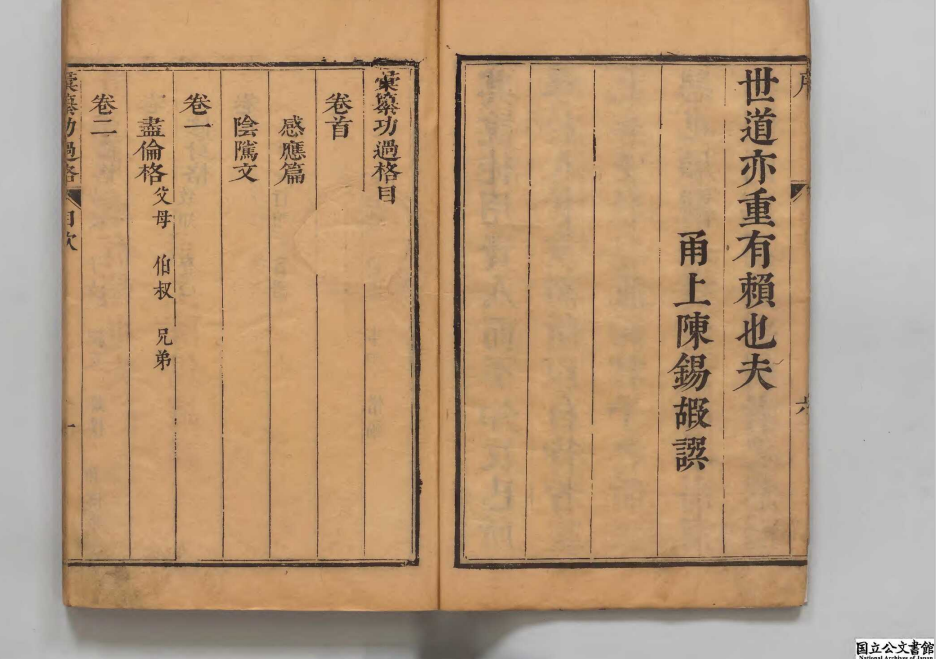 序
六
世道亦重有賴也夫
甬上陳錫嘏譔
彙纂功過格目
卷首
感應篇
陰隲文
卷一
盡倫格 父母 伯叔 兄弟
卷二
彙纂功過格 目次 一
国立公文書館
National Archives of Japan